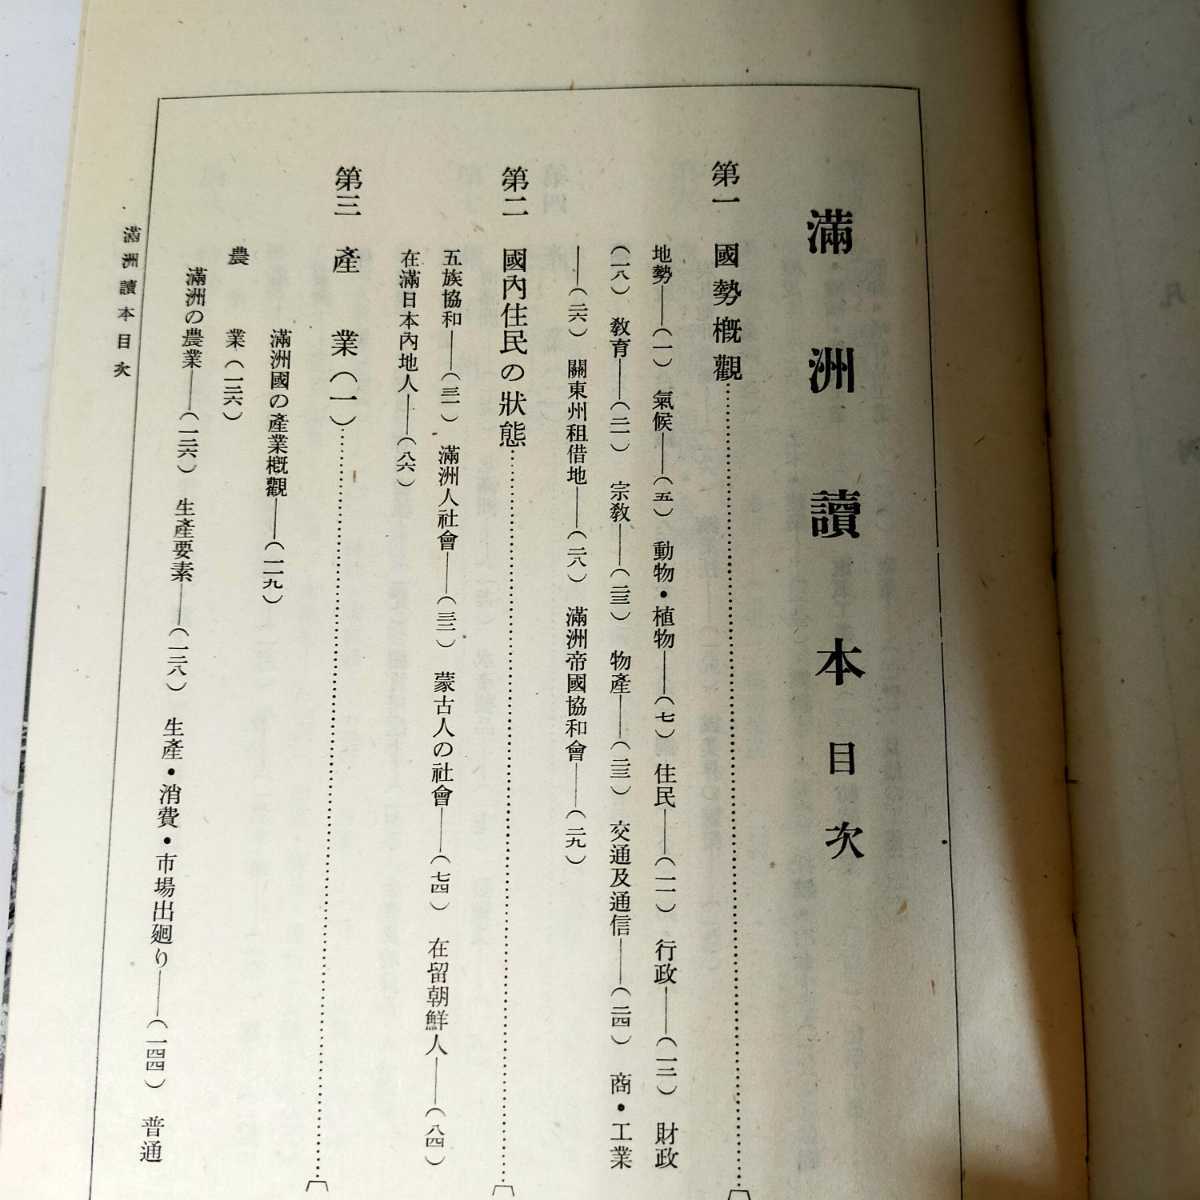 滿洲讀本目次
第一 國勢槪觀
地勢――(一) 氣候――(五) 動物・植物――(七) 住民――(一一) 行政――(一三) 財政
(一八) 敎育――(二一) 宗敎――(二三) 物產――(二三) 交通及通信――(二四) 商・工業
――(二六) 關東州租借地――(二八) 滿洲帝國協和會――(二九)
第二 國內住民の狀態
五族協和――(三一) 滿洲人社會――(三二) 蒙古人の社會――(七四) 在留朝鮮人――(八四)
在滿日本內地人――(八六)
第三 產業(一)
滿洲國の產業槪觀――(一一九)
農業(一二六)
滿洲の農業――(一二六) 生產要素――(一二八) 生產・消費・市場出廻り――(一四四) 普通
滿洲讀本目次